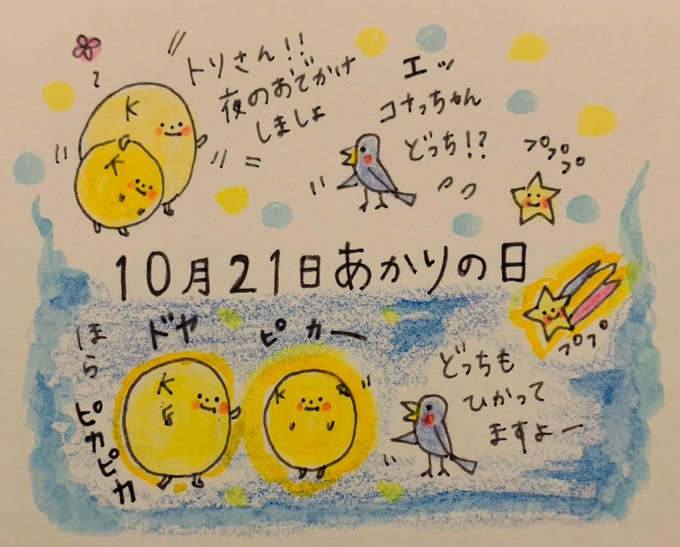 トリさん!!
夜のおでかけ
しましょ
エッ
コナっちゃん
どっち!?
プププ
K
8
K
8
10月21日あかりの日
ププ
ほら
ピカピカ
ドヤ
ピカー
K
8
K
どっちも
ひかって
ますよー